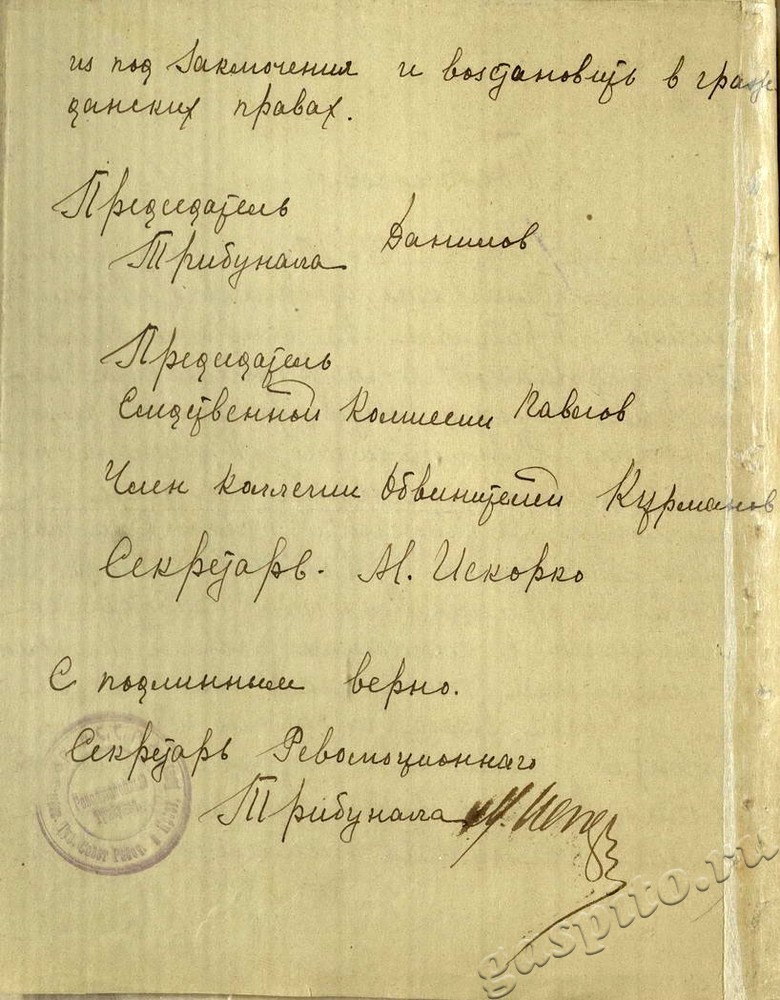 из под заключения и возтановить в граж
данских правах.
Председатель
Трибунала Данилов
Председатель
Следственной Комиссии Павлов
Член коллегии Обвинителей Курманов
Секретарь. М. Искорко
С подлинным верно.
Секретарь Революционнаго
Трибунала
gaspito.ru